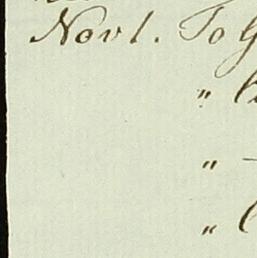 Nov 1. To
"
"
"